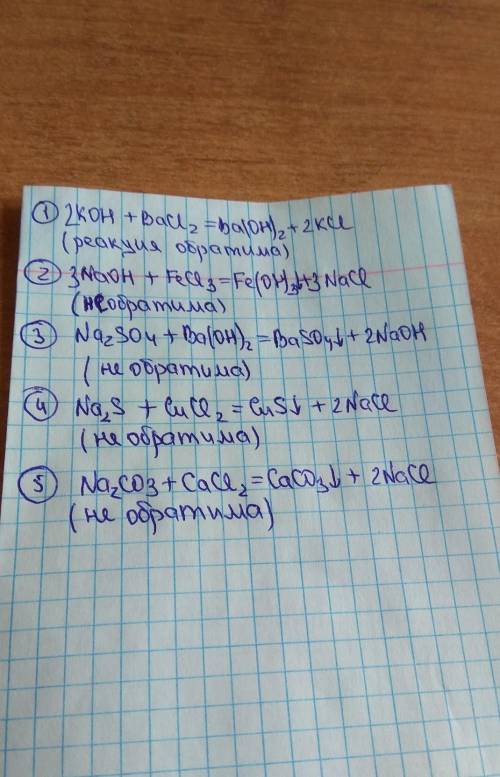 ① 2KOH + BaCl₂ = Ba(OH)₂ + 2KCl
(реакция обратима)
② 3NaOH + FeCl₃ = Fe(OH)₃↓+3 NaCl
(необратима)
③ Na₂SO₄ + Ba(OH)₂ = BaSO₄↓ + 2NaOH
(не обратима)
④ Na₂S + CuCl₂ = CuS↓ + 2NaCl
(не обратима)
⑤ Na₂CO₃ + CaCl₂ = CaCO₃↓ + 2NaCl
(не обратима)